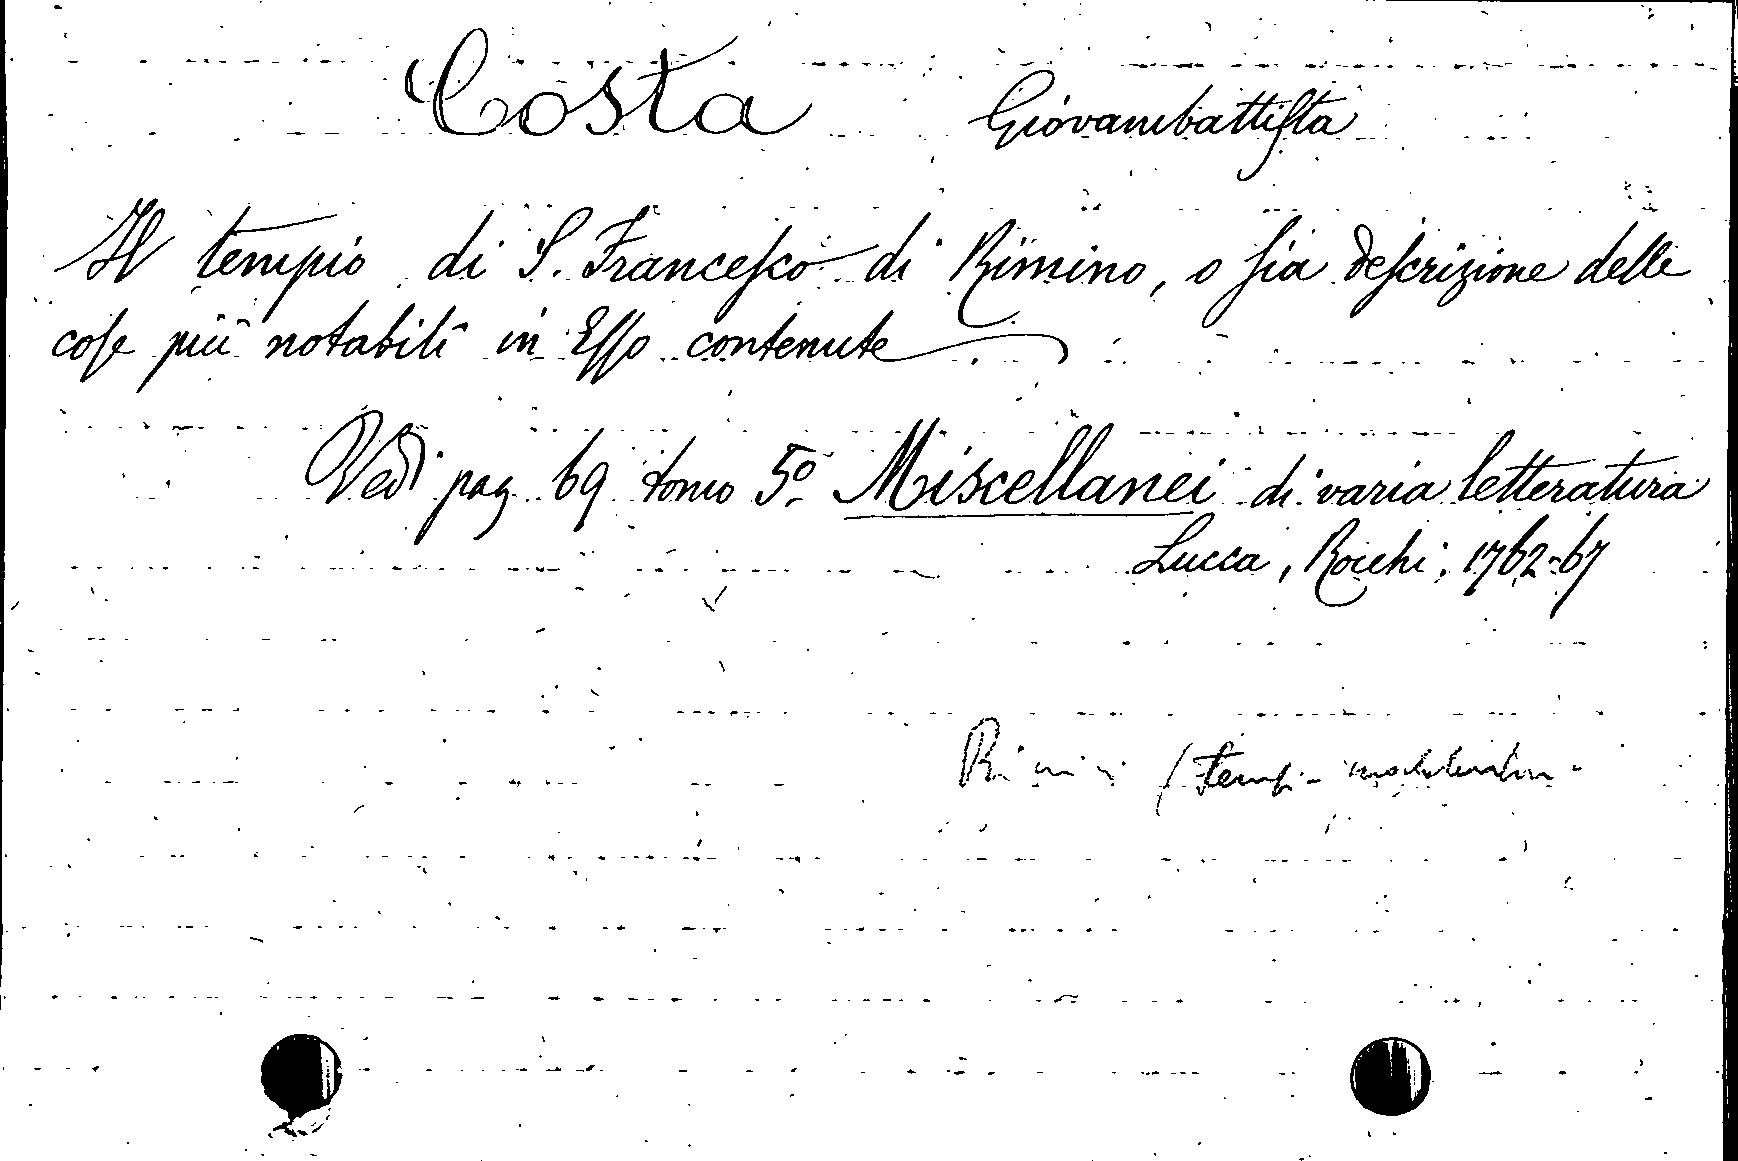 Costa Giovambattista
Il tempio di S. Francesco di Rimino, o sia descrizione delle
cose più notabili in Esso contenute
Vedi pag 69 tomo 5º Miscellanei di varia letteratura
Lucca, Rocchi, 1762-67
Rimini (tempi-